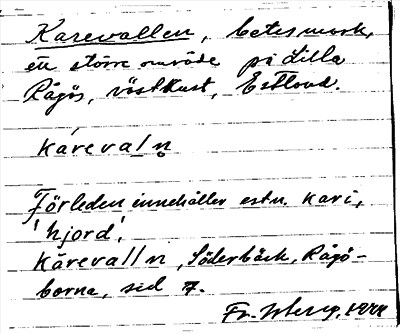 Karevallen, betesmark,
en större område på Lilla
Rågös, västkust, Estland.
kárevaln̥
Förleden innehåller estn. kari,
'hjord'.
kārevalln, Söderbäck, Rågö-
borna, sid 7.
Fr.